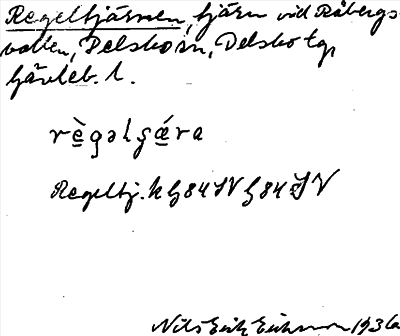 Regeltjärnen, tjärn vid Råbergs-
vallen, Delsbo sn, Delsbo tg,
Gävleb. l.
règəlʂǽra
Regeltj. k G84 SV G84 SV
Nils Erik Eriksson 1936